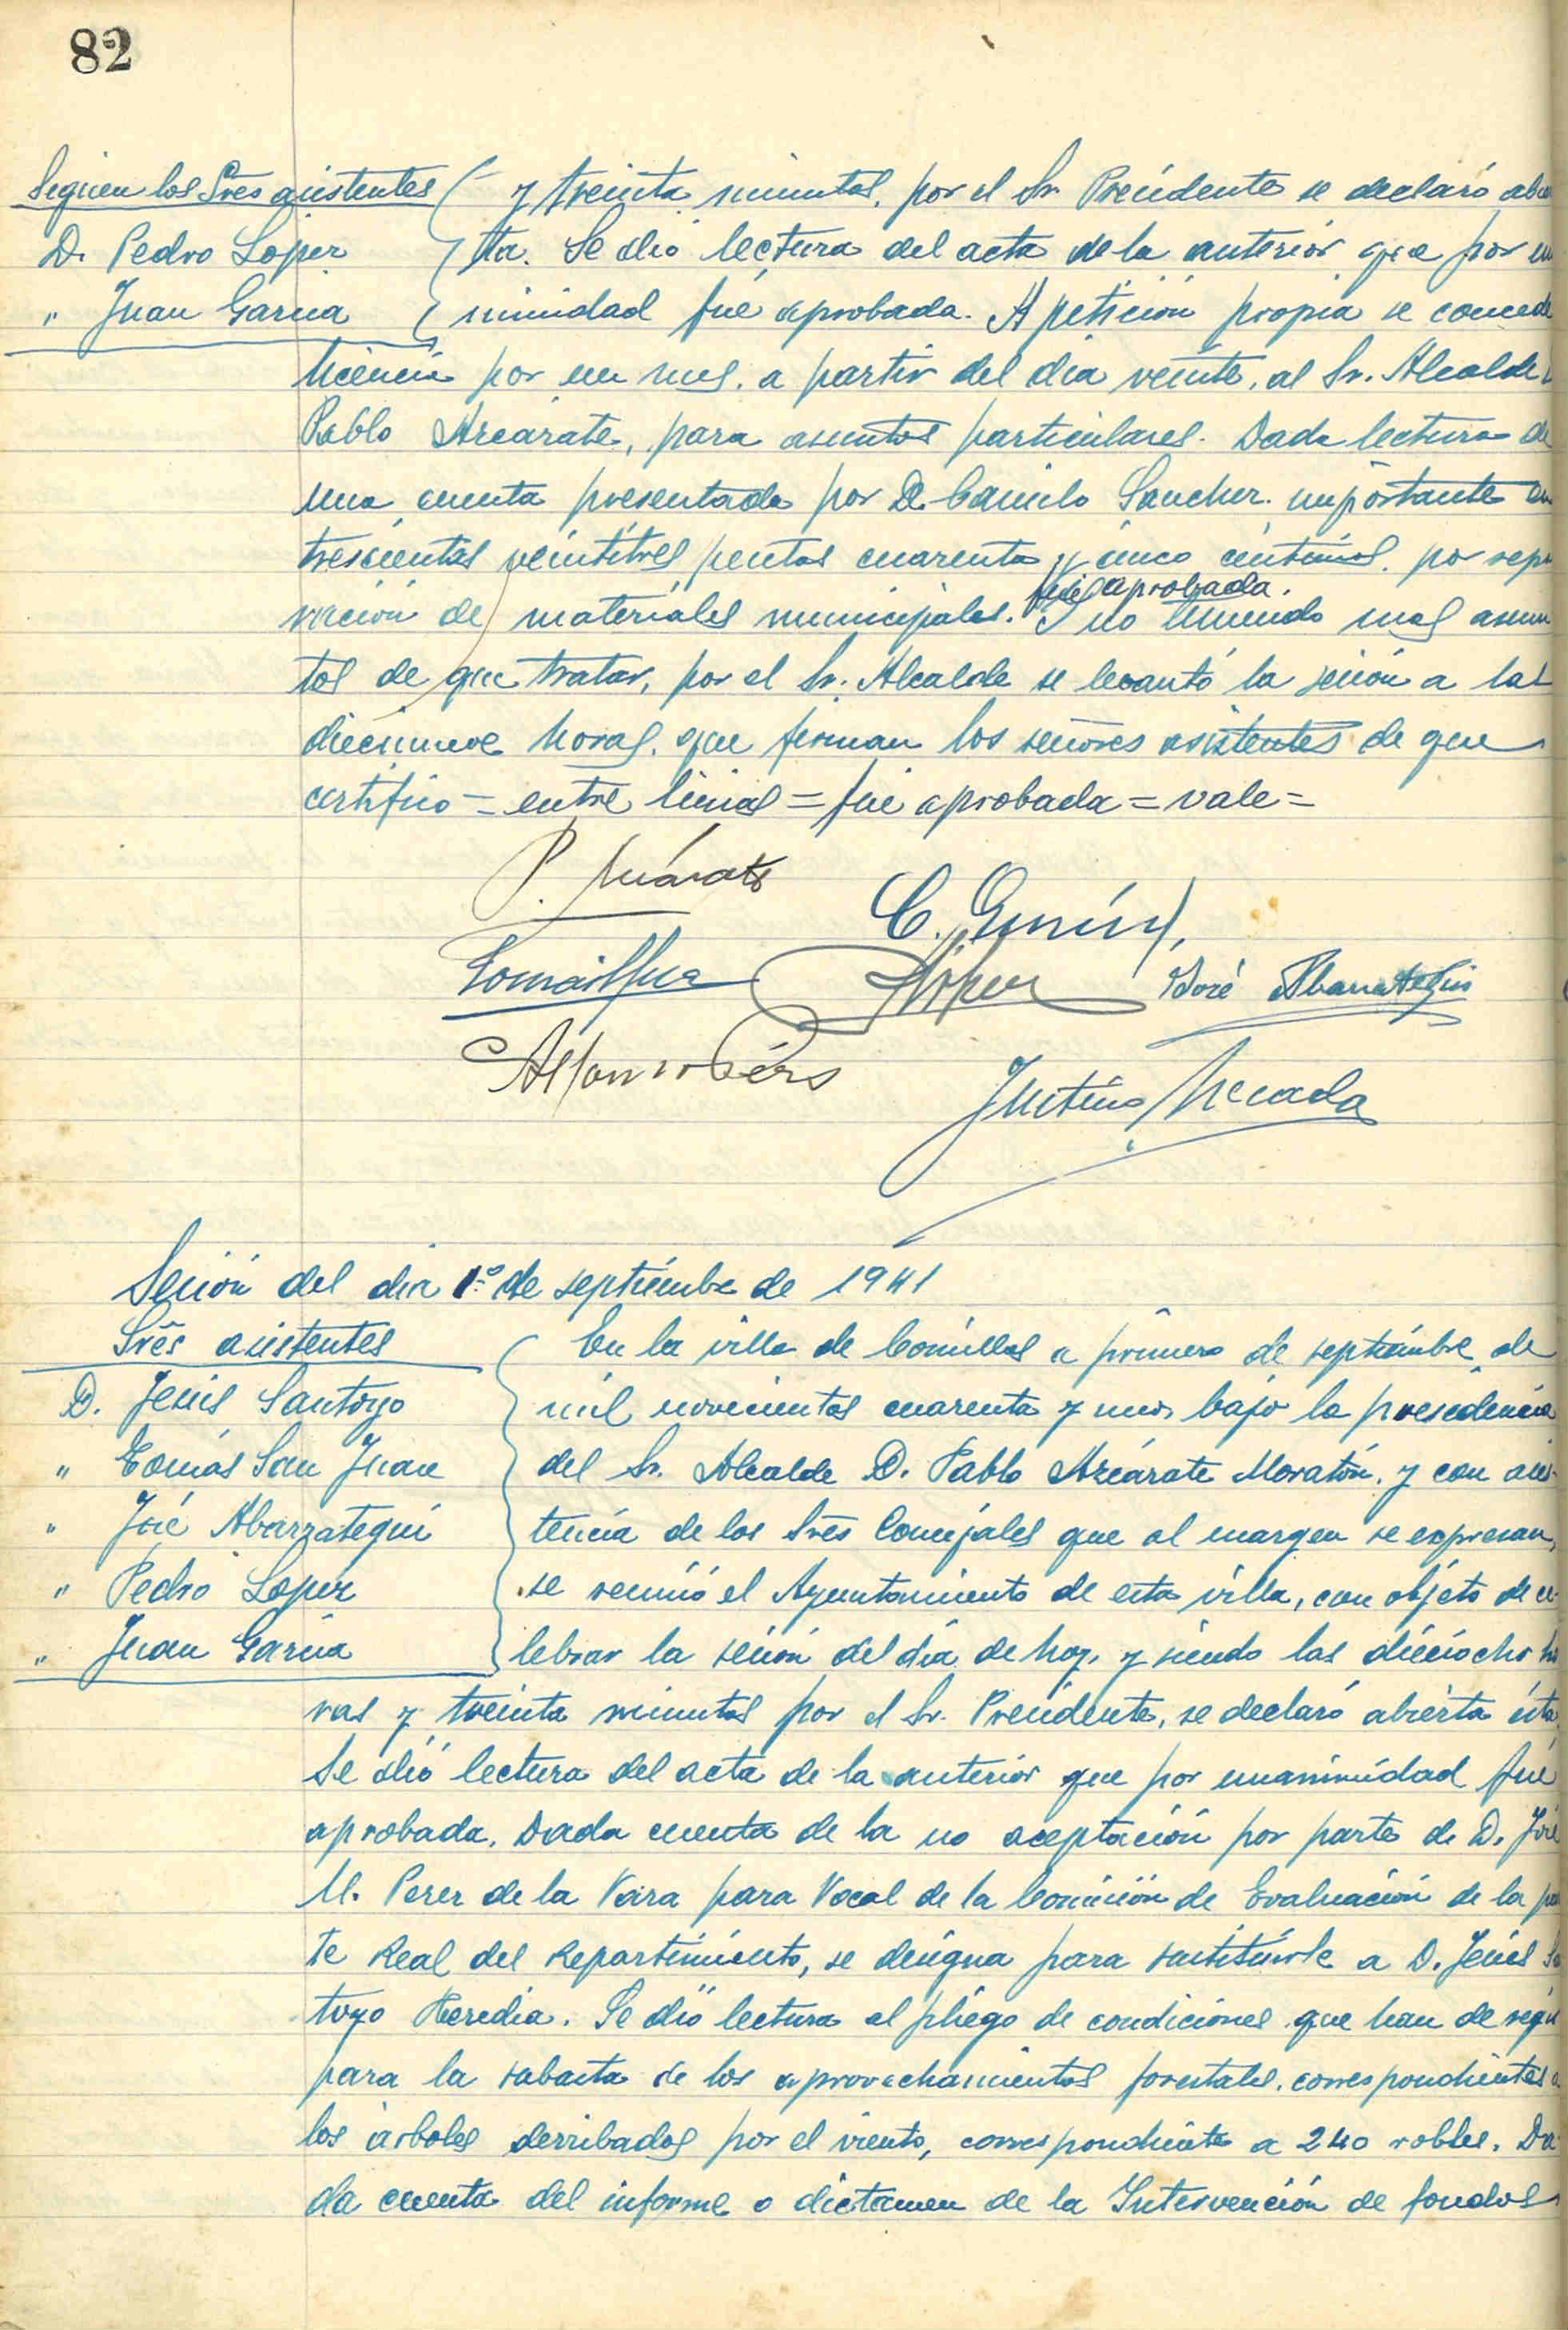 82
Siguen los Sres asistentes
D. Pedro Lopez
" Juan Garcia
y treinta minutos, por el Sr Presidente se declaró abier
ta. Se dió lectura del acta de la anterior que por una
nimidad fué aprobada. A petición propia se concede
licencia por un mes, a partir del dia veinte, al Sr. Alcalde
Pablo Azcárate, para asuntos particulares. Dada lectura de
una cuenta presentada por D. Camilo Sanchez importante en
trescientas veintitres pesetas cuarenta y cinco centimos, por repa
fué aprobada.
ración de materiales municipales. Y no teniendo mas asun
tos de que tratar, por el Sr. Alcalde se levantó la sesión a las
diecinueve horas, que firman los señores asistentes de que
certifico = entre lineas = fué aprobada = vale =
P. Azcárate
C.
José Abarrategui
Justino
Sesión del dia 1º de septiembre de 1941
Sres asistentes
D. Jesús Santoyo
" Tomás San Juan
" José Abarrategui
" Pedro Lopez
" Juan Garcia
En la villa de Comillas a primero de septiembre de
mil novecientos cuarenta y uno, bajo la presidencia
del Sr. Alcalde D. Pablo Azcárate Moratón, y con asis-
tencia de los Sres Concejales que al margen se expresan,
se reunió el Ayuntamiento de esta villa, con objeto de ce-
lebrar la sesión del día de hoy, y siendo las dieciocho ho
ras y treinta minutos por el Sr. Presidente, se declaró abierta ésta
Se dió lectura del acta de la anterior que por unanimidad fué
aprobada. Dada cuenta de la no aceptación por parte de D. José
M. Perez de la Vara para Vocal de la Comisión de Evaluación de la par
te Real del Repartimiento, se designa para sustituirle a D. Jesús San
toyo Heredia. Se dió lectura al pliego de condiciones que han de regir
para la subasta de los aprovechamientos forestales, correspondientes a
los árboles derribados por el viento, correspondiente a 240 robles. Da-
da cuenta del informe o dictamen de la Intervención de fondos